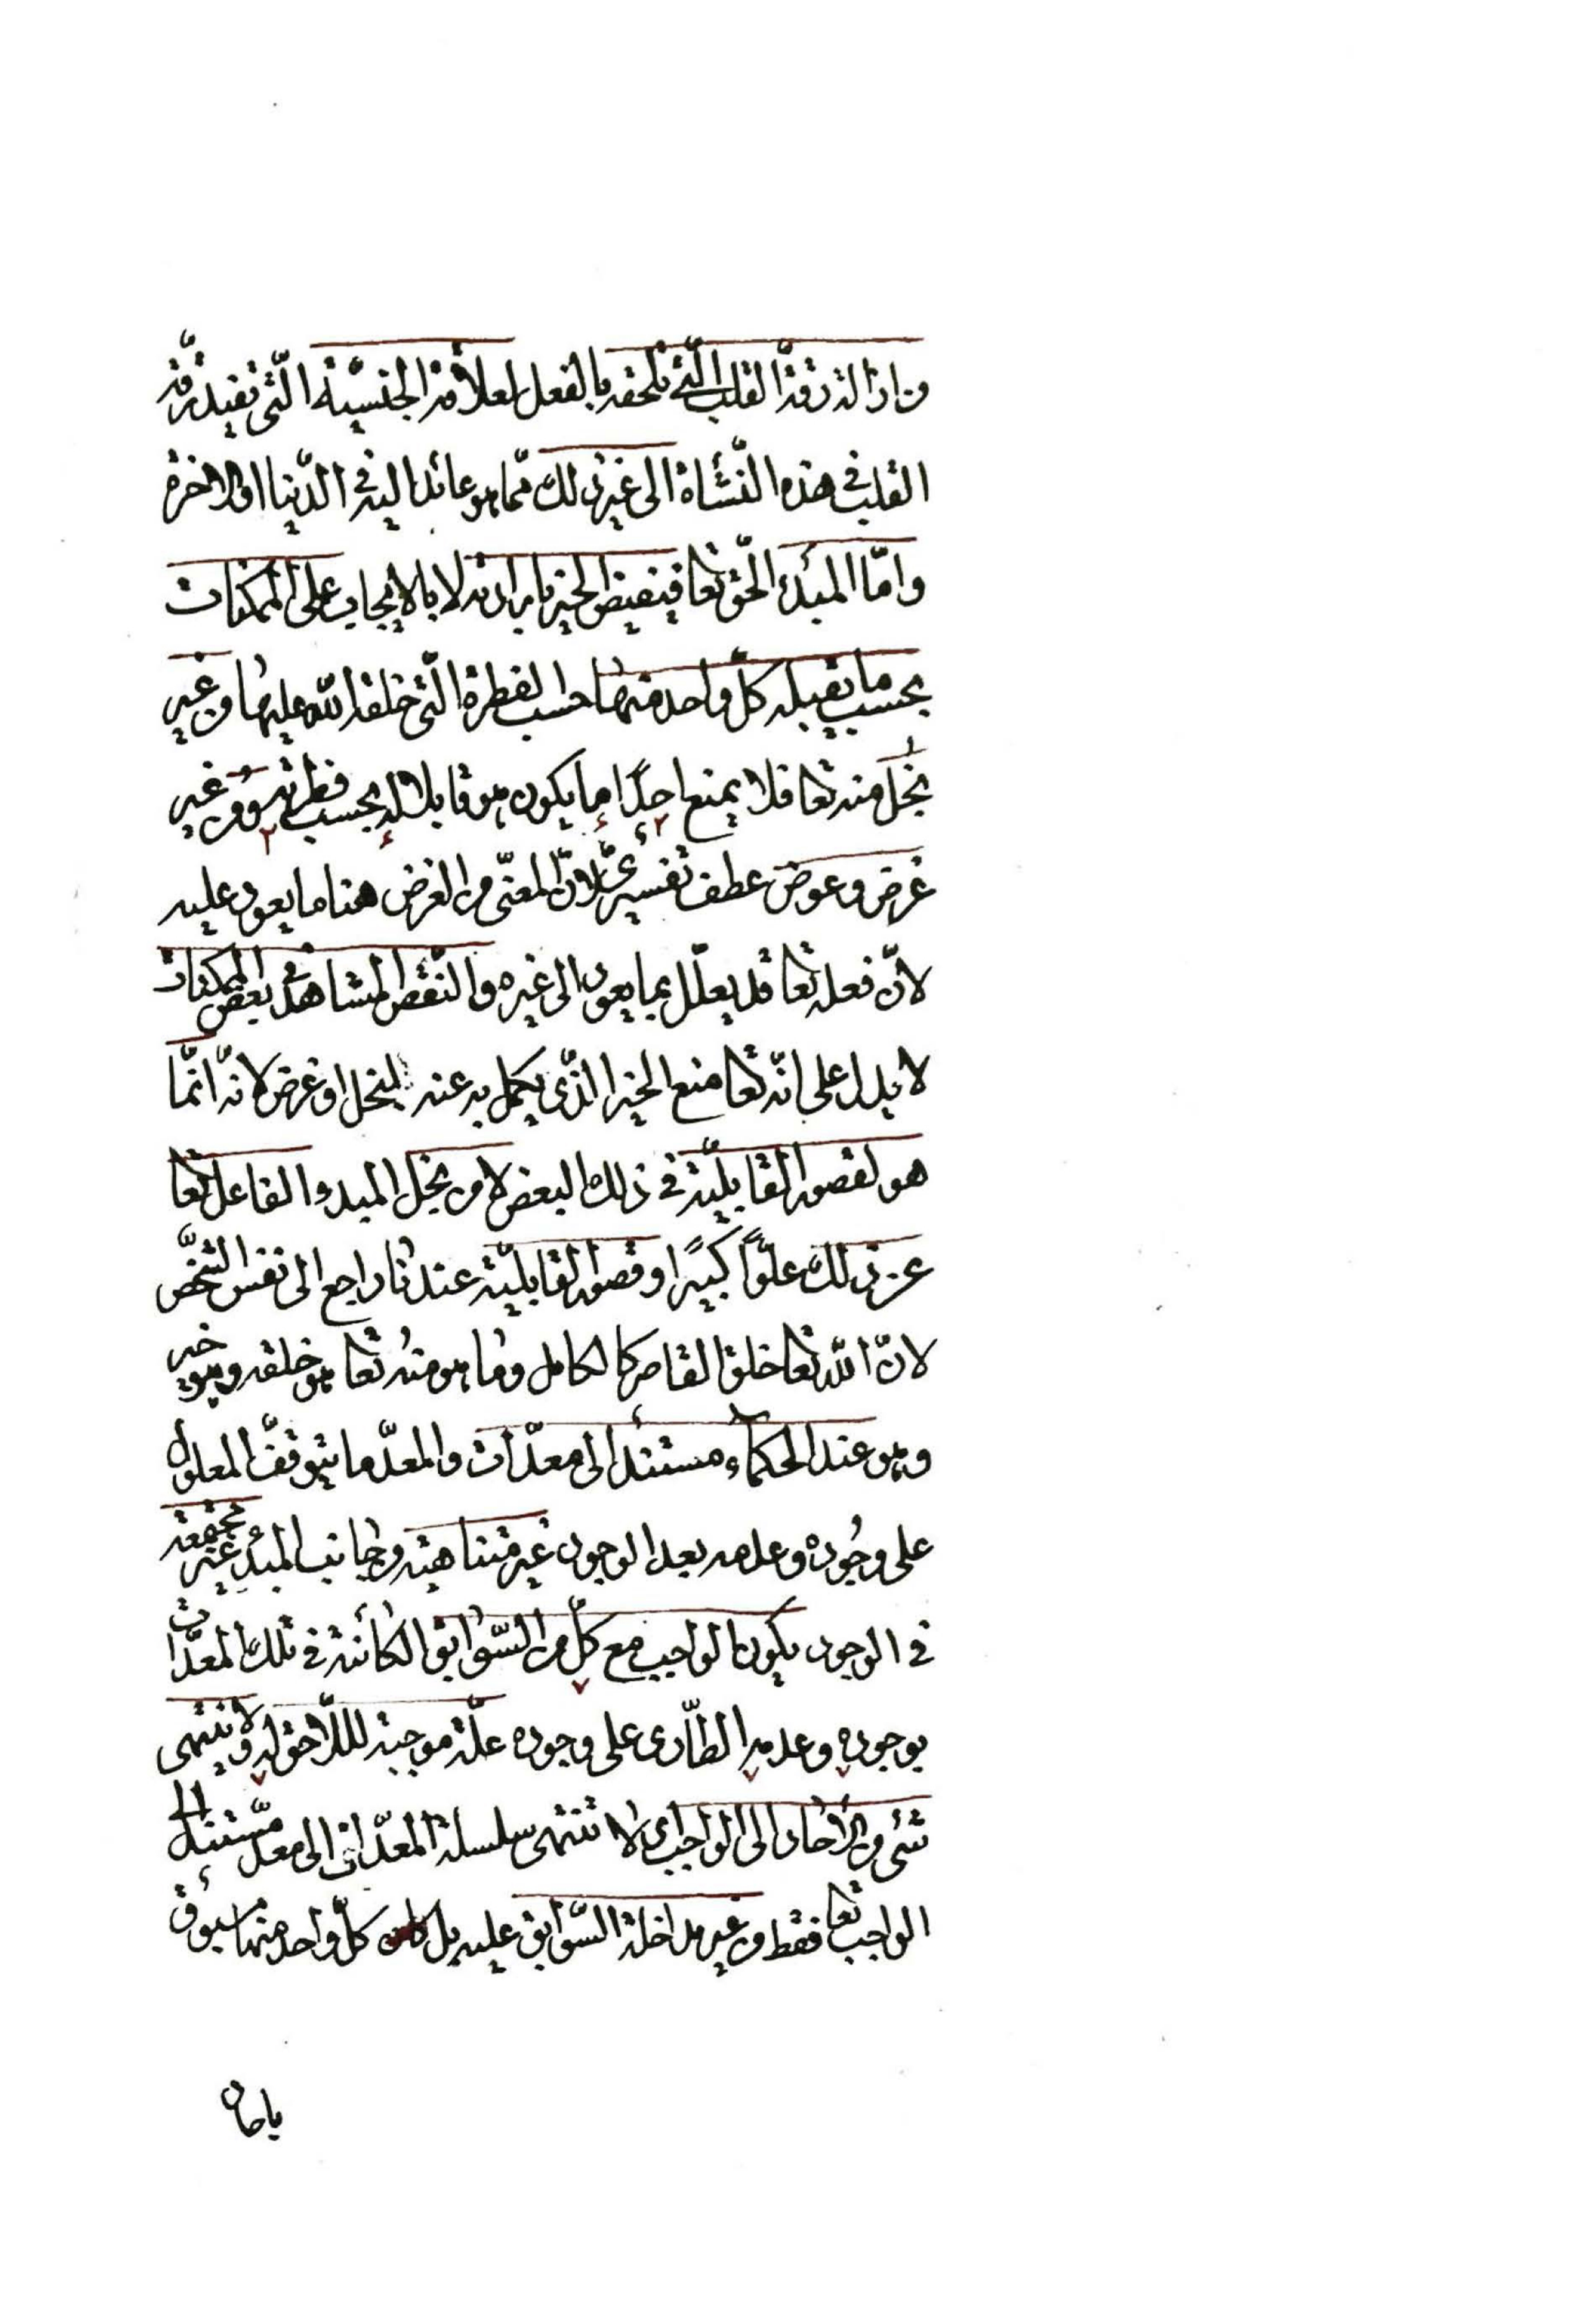 من ازالة رقة القلب التي تلحقه بالفعل لعلاقة الجنسيّة الّتي تفيد رقّة
القلب في هذه النّشأة الى غير ذلك ممّا هو عائد اليه في الدّنيا او الاخرة
وامّا المبدأ الحقّ تعا فيفيض الخير بارادته لا بالايجاب على الممكنات
بحسب ما يقبله كلّ واحد منها حسب الفطرة الّتي خلقه الله عليها من غير
بخل منه تعا فلا يمنع احدًا ما يكون هو قابلا له بحسب فطرته ومن غير
غرض وعوض عطف تفسيريّ لانّ المعنيّ من الغرض هنا ما يعود عليه
لانّ فعله تعا قد يعلّل بما يعود الى غيره والنّقص المشاهد في بعض الممكنات
لا يدل على انّه تعا منع الخير الذّي يكمل به عنه لبخل او غرض لانّه انّما
هو لقصور القابليّة في ذلك البعض لا من بخل المبدء الفاعل تعا
عن ذلك علوًّا كبيرًا وقصور القابليّة عندنا راجع الى نفس الشّخص
لانّ الله تعا خلق القاصر كالكامل وما هو منه تعا هو خلقه وهو خير
وهو عند الحكماء مستند الى معدّات والمعدّ ما يتوقّف المعلول
على وجوده وعدمه بعد الوجود غير متناهية من جانب المبدأ غير مجتمعة
في الوجود يكون الواجب مع كلّ من السّوابق الكائنة في تلك المعدّات
بوجوده وعدمه الطّارى على وجوده علّة موجبة لللّاحق له ولا ينتهى
شئ من الآحاد الى الواجب اى لا تنتهى سلسلة المعدّات الى معدّ مستند الى
الواجب تعا فقط من غير مداخلة السّوابق عليه بل كلّ واحد منها مسبوق